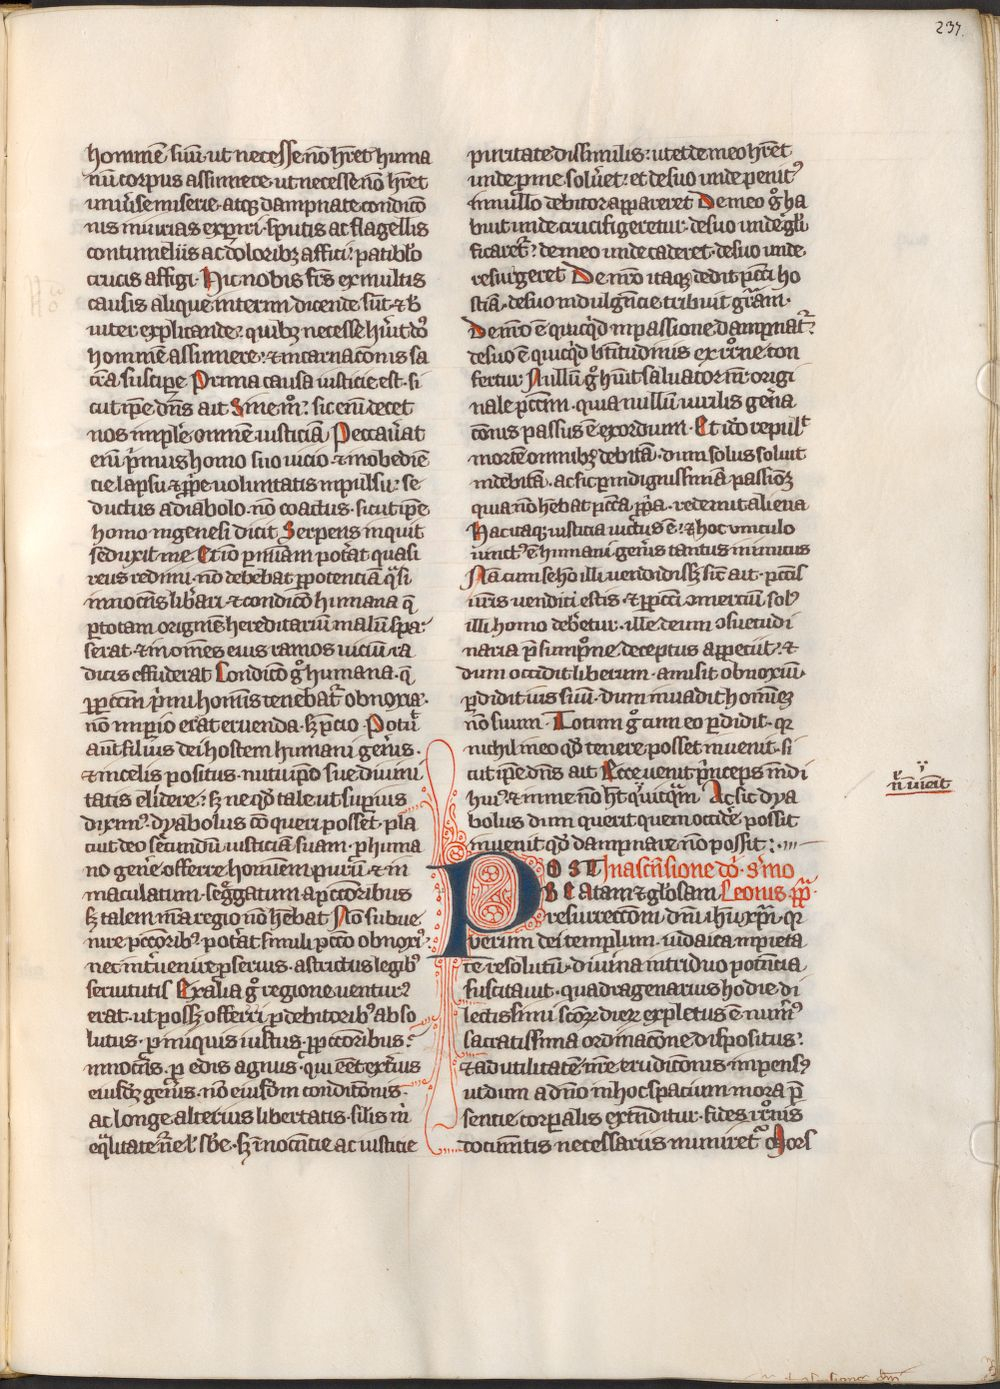 237.
hominē suū· ut necesse nō hēret huma
nū corpus assumere ut necesse nō hēret
univ̄se miserie· atq; dampnate condicō
nis iniurias exp̄iri· sputis ac flagellis
contumeliis ac doloribꝫ affici· patibl̓o
crucis affigi· Hic nobis frēs ex multis
causis alique interim dicende sūt· ⁊ b̓
viter explicande· quibꝫ necesse hūit dꝰ
hominē assumere· ⁊ incarnacōnis sa
cr̄a suscipe Prima causa iusticie est· si
cut ip̄e dn̄s ait Sine m̊· sic enī decet
nos impl̓e omnē iusticiā Peccav̄at
enī p̓mus homo suo vicio· ⁊ inobediē
cie lapsu ⁊ p̄pe voluntatis inpulsu· se
ductus a diabolo· nō coactus· sicut ip̄e
homo in genesi dicit Serpens inquit
seduxit me· Et iō p iniuriam pot̄at quasi
reus redimi· nō debebat p potenciam q̄si
innocens lib̓ari· ⁊ condicō humana q̄
p totam originē hereditariū malū spa
serat· ⁊ in omēs eius ramos viciū ra
dicis effuderat Condicō gͦ humana· q̄
p pccm̄ p̓mi hominis tenebat̄ obnoxia·
nō inp̄io erat eruenda· sꝫ p̄cio· Potuit
aūt filius dei hostem humani gen̄is·
⁊ in celis positus· nutu ip̄o sue divini
tatis elidere· sꝫ ne qd̓ tale ut sup̄ius
diximꝰ· dyabolus cōqueri posset· pla
cuit deo secundū iusticiā suam· p huma
no gen̄e offerre hominem purū· ⁊ in
maculatum· segg̓atum a p̄ctoribus
sꝫ talem n̄ra regio nō hēbat Nō subue
nire pc̄cōribꝰ pot̄at simili pc̄cō obnoxiꝰ
nec int̓venire p servis· astrictus legibꝰ
servitutis Ex alia gͦ regione venturꝰ
erat· ut possꝫ offerri p debitoribꝰ abso
lutus· p iniquis iustus· p pc̄cōribus·
innocēs· p edis agnus· qui eēt ext̓ius
eiusdꝫ gen̄is· nō eiusdm̄ condicionis·
ac longe alterius libertatis· silis in
eq̄litate n̄re s̄be· sꝫ inocēcie ac iusticie
puritate dissimilis· ut et de meo hēret
unde p me solv̄et· et de suo unde penitꝰ
in nullo debitor appareret De meo gͦ ha
buit unde crucifigeretur· de suo unde gl̓i
ficaret̄· de meo unde caderet· de suo unde
resurgeret De n̄ro itaqꝫ dedit pcc̄i ho
stiā· de suo indulgēcie tribuit gr̄am·
De n̄ro ē quicqd̓ in passione dampnat̄·
de suo ē quicqd̓ bt̄itudinis ex rōne con
fertur Nullū gͦ hūit salvator nr̄ origi
nale pccm̄· quia nullū virilis gen̄a
cōnis passus ē exordium· Et iccō repul̓
mortē omnibꝫ debitā· dum solus soluit
indebitā· ac sic p indignissimā passionē
quia nō hēbat pccā p̄pa· redemit aliena
Hac itaqꝫ iusticia victus ē· ⁊ hoc vinculo
vinctꝰ ē humani gen̄is tantus inimicus
Nā cum se hō illi vendidissꝫ sic̄ ait· pcc̄is
v̄ris venditi estis· ⁊ p pcc̄i ↄmerciū solꝰ
illi homo deb̓etur· ille deum ↄsuetudi
naria p̄sumpcōne deceptus appeciit· ⁊
dum occidit liberum· amisit obnoxiū·
pdidit ius suū· dum invadit hominē
nō suum· Totum gͦ cum eo pdidit· qr
nichil in eo qd̓ tenere posset invenit· si
cut ip̄e dn̄s ait Ecce venit p̓nceps mūdi
huiꝰ· ⁊ in me nō ht̄ quicq̄m Ac sic dya
bolus dum querit quem occid̓e possit
invenit qd̓ dampnare nō possit·
n̄ vicit
POST In ascensione do· s̓mo
BEatam ⁊ gl̓osam Leonis pp̄·
resurreccōni· dn̄i ihū xp̄i· qr
verum dei templum· iudaica impieta
te resolutū· divina in triduo potēcia
suscitavit· quadragenarius hodie di
lectissimi scōꝝ dieꝝ expletus ē num̓us
sacratissima ordinacōne dispositus·
⁊ ad utilitatē n̄re erudicionis impensꝰ
ut dum a dn̄o in hoc spacium mora p̄
sentie corp̄alis extēditur· fides rōnis
documētis necessariis muniret̄ Mors